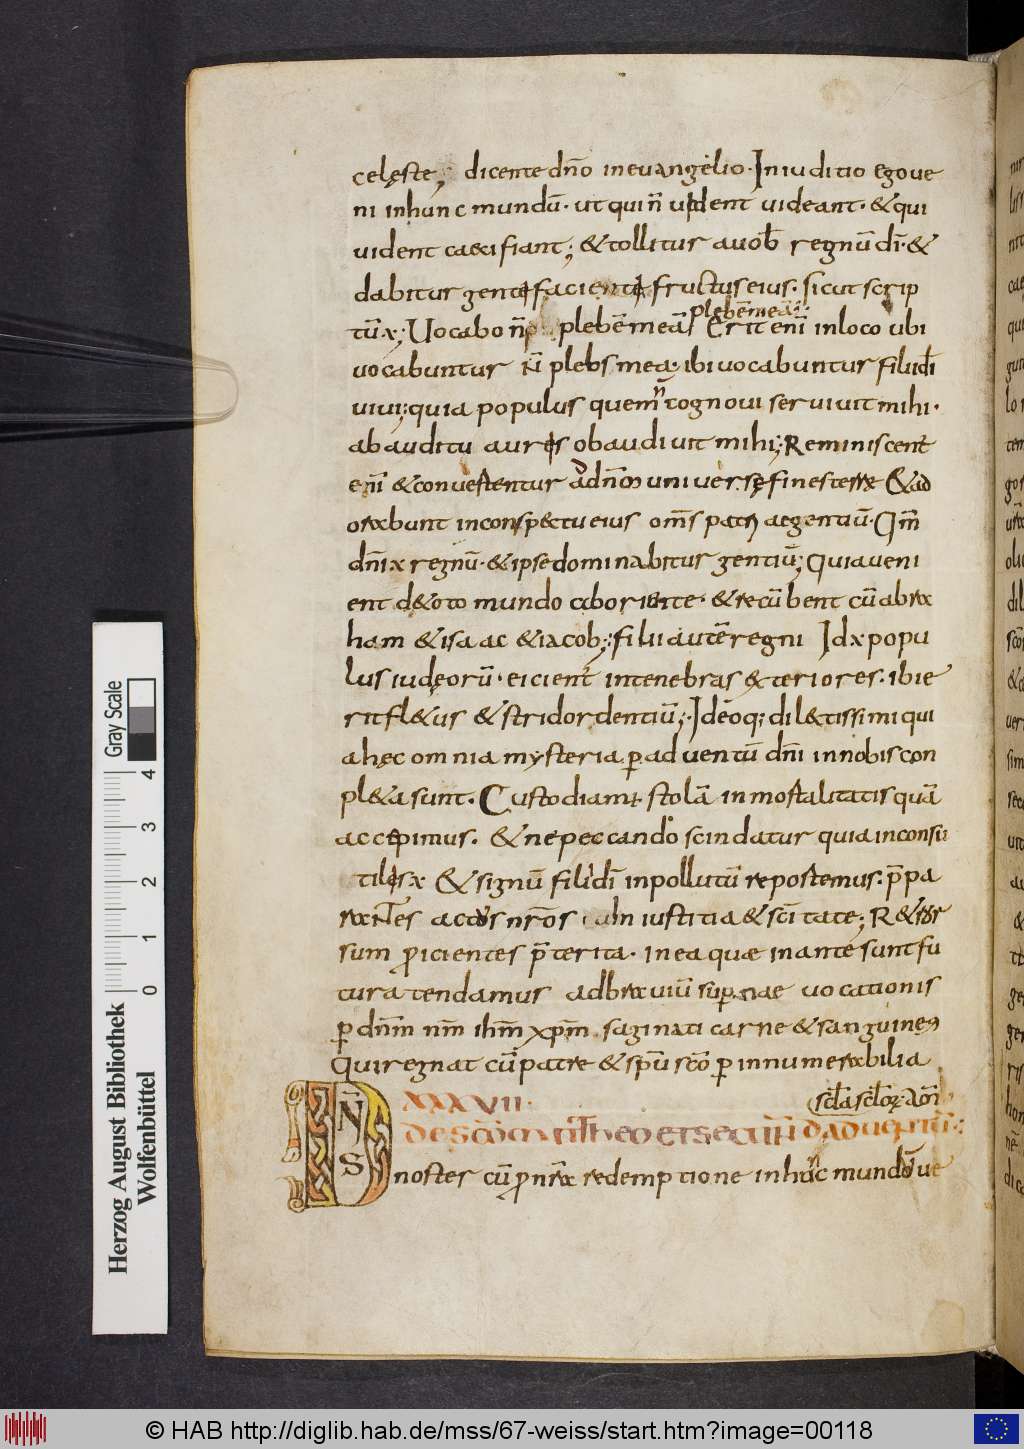 celęste; dicente dn̄o in evangelio. In iuditio ego ve
ni in hunc mundū. ut qui n̄ vident videant. & qui
vident caeci fiant; & tollitur a vob̄ regnū dī. &
dabitur genti facienti fructus eius. sicut scrip
plebē meā.
tū x; Vocabo n̄ plebē meā Erit enī in loco ubi
vocabuntur n̄ plebs mea. ibi vocabuntur filii dī
vivi; quia populus quem n̄ cognovi servivit mihi.
ab auditu auris obaudivit mihi; Reminiscent
enī & convertentur ad dn̄m universę fines terrae & ad
orabunt in conspectu eius om̄s patriae gentiū. Qm̄
dn̄i x regnū. & ipse dominabitur gentiū; Quia veni
ent de toto mundo ab oriente. & recūbent cū abra
ham & isaac & iacob; filii autē regni Id x popu
lus iudęorū. eicient in tenebras exteriores. ibi e
rit fl&us & stridor dentiū; Ideoq; dil&issimi qui
a hęc omnia mysteria p adventū dn̄i in nobis con
pl&a sunt. Custodiam; stolā inmortalitatis quā
accepimus. & ne peccando scindatur quia inconsu
tilis x & signū filii dī inpollutū reportemus. p̄pa
rantes actus nr̄os in iustitia & sc̄itate; R&ror
sum proicientes p̄terita. in ea quae in ante sunt fu
tura tendamus ad bravium supernae vocationis
p dn̄m nm̄ ihm̄ xpm̄ saginati carne & sanguine eius
Qui regnat cū patre & spū sc̄o p innumerabilia
XXXVII. scl̄a scl̄orꝫ. am̄
DE SC̄DM MATTHEO ET SECUNDI ADVENTŪ:
DN̄S noster cū pro nr̄a redemptione in hunc mundū ve
Gray Scale
4
3
2
1
0
Herzog August Bibliothek
Wolfenbüttel
© HAB http://diglib.hab.de/mss/67-weiss/start.htm?image=00118